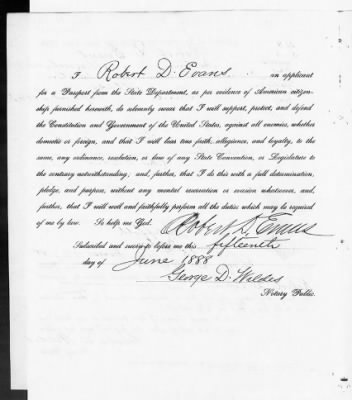 I Robert D. Evans. an applicant
for a Passport from the State Department, as per evidence of American citizen-
ship furnished herewith, do solemnly swear that I will support, protect, and defend
the Constitution and Government of the United States, against all enemies, whether
domestic or foreign, and that I will bear true faith, allegiance, and loyalty, to the
same, any ordinance, resolution, or law of any State Convention, or Legislature to
the contrary notwithstanding; and, further, that I do this with a full determination,
pledge, and purpose, without any mental reservation or evasion whatsoever, and,
further, that I will well and faithfully perform all the duties which may be required
of me by law. So help me God. Robert D. Evans
Subscribed and sworn to before me this fifteenth
day of June 1888
George D. Wildes
Notary Public.